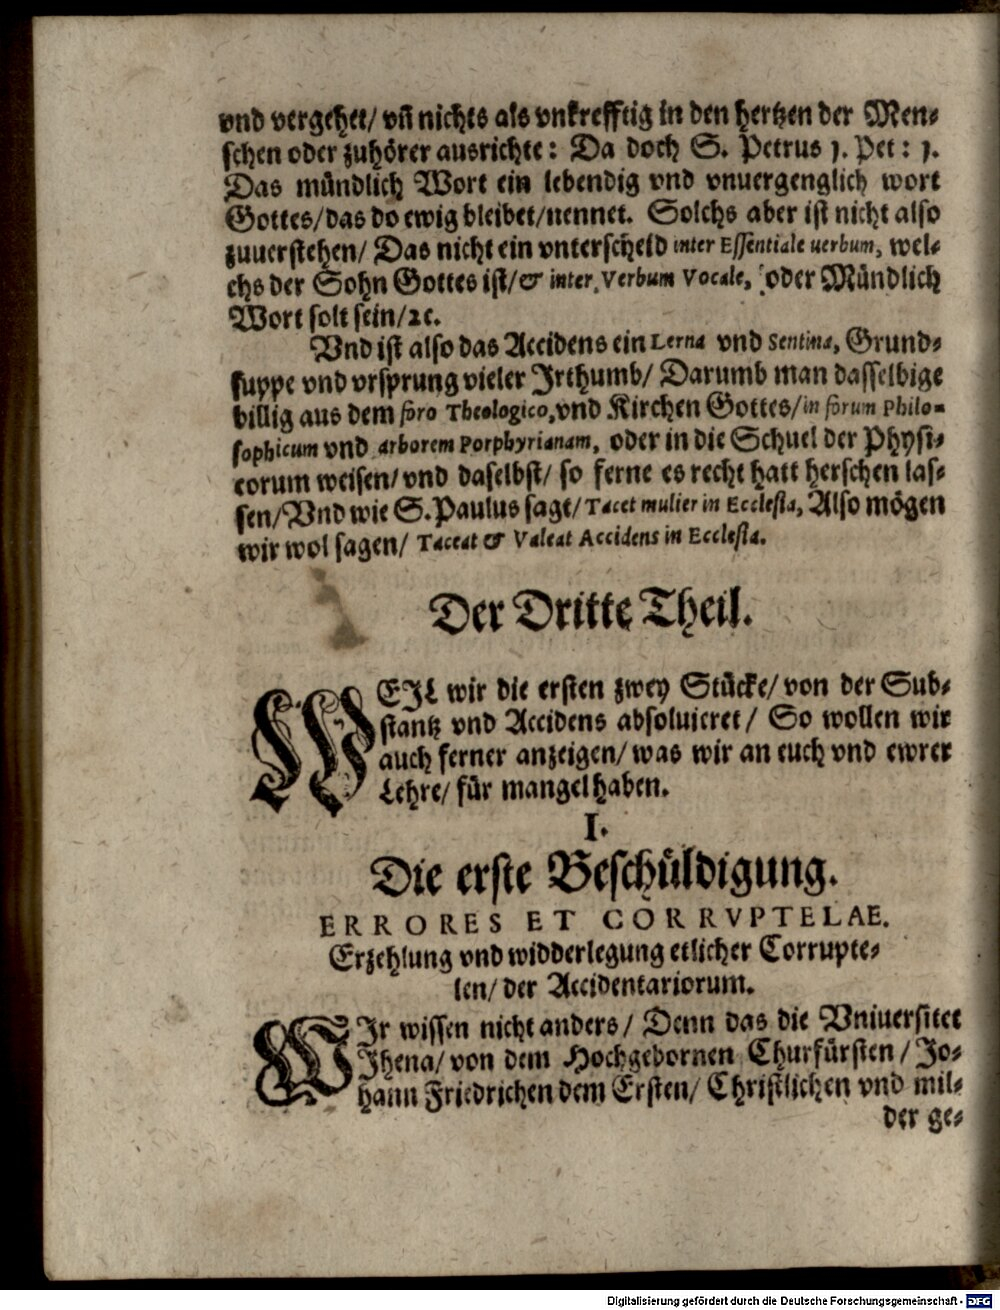 vnd vergehet/ vñ nichts als vnkrefftig in den hertzen der Men⸗
schen oder zuhörer ausrichte: Da doch S. Petrus 1. Pet: 1.
Das mündlich Wort ein lebendig vnd vnuergenglich wort
Gottes/ das do ewig bleibet/ nennet. Solchs aber ist nicht also
zuuerstehen/ Das nicht ein vnterscheid inter Essentiale uerbum, wel⸗
chs der Sohn Gottes ist/ & inter Verbum Vocale, oder Mündlich
Wort solt sein/ ꝛc.
Vnd ist also das Accidens ein Lerna vnd Sentina, Grund⸗
suppe vnd vrsprung vieler Jrthumb/ Darumb man dasselbige
billig aus dem foro Theologico, vnd Kirchen Gottes/ in forum Philo⸗
sophicum vnd arborem Porphyrianam, oder in die Schuel der Physi⸗
corum weisen/ vnd daselbst/ so ferne es recht hatt herschen las⸗
sen/ Vnd wie S. Paulus sagt/ Tacet mulier in Ecclesia, Also mögen
wir wol sagen/ Taceat & Valeat Accidens in Ecclesia.
Der Dritte Theil.
WEJL wir die ersten zwey Stücke/ von der Sub⸗
stantz vnd Accidens absoluieret/ So wollen wir
auch ferner anzeigen/ was wir an euch vnd ewrer
Lehre/ für mangel haben.
I.
Die erste Beschüldigung.
ERRORES ET CORRVPTELAE.
Erzehlung vnd widderlegung etlicher Corrupte⸗
len/ der Accidentariorum.
WJr wissen nicht anders/ Denn das die Vniuersitet
Jhena/ von dem Hochgebornen Churfürsten/ Jo⸗
hann Friedrichen dem Ersten/ Christlichen vnd mil⸗
der ge⸗
Digitalisierung gefördert durch die Deutsche Forschungsgemeinschaft - DFG